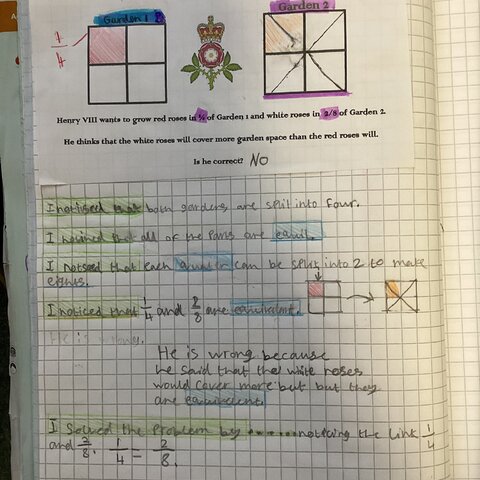 Garden 1
Garden 2
1/4
Henry VIII wants to grow red roses in ¼ of Garden 1 and white roses in 2/8 of Garden 2.
He thinks that the white roses will cover more garden space than the red roses will.
Is he correct? NO
I notised that both gardens are split into four.
that all of the parts are
I notsed that each can be split into 2 to make
eights.
I noticed that 1/4 and 2/8 are equivalent.
He is wrong.
He is wrong because
he said that the white roses
would cover more but but they
are
I solved the problem by ...... noticing the link 1/4
and 2/8. 1/4 = 2/8.